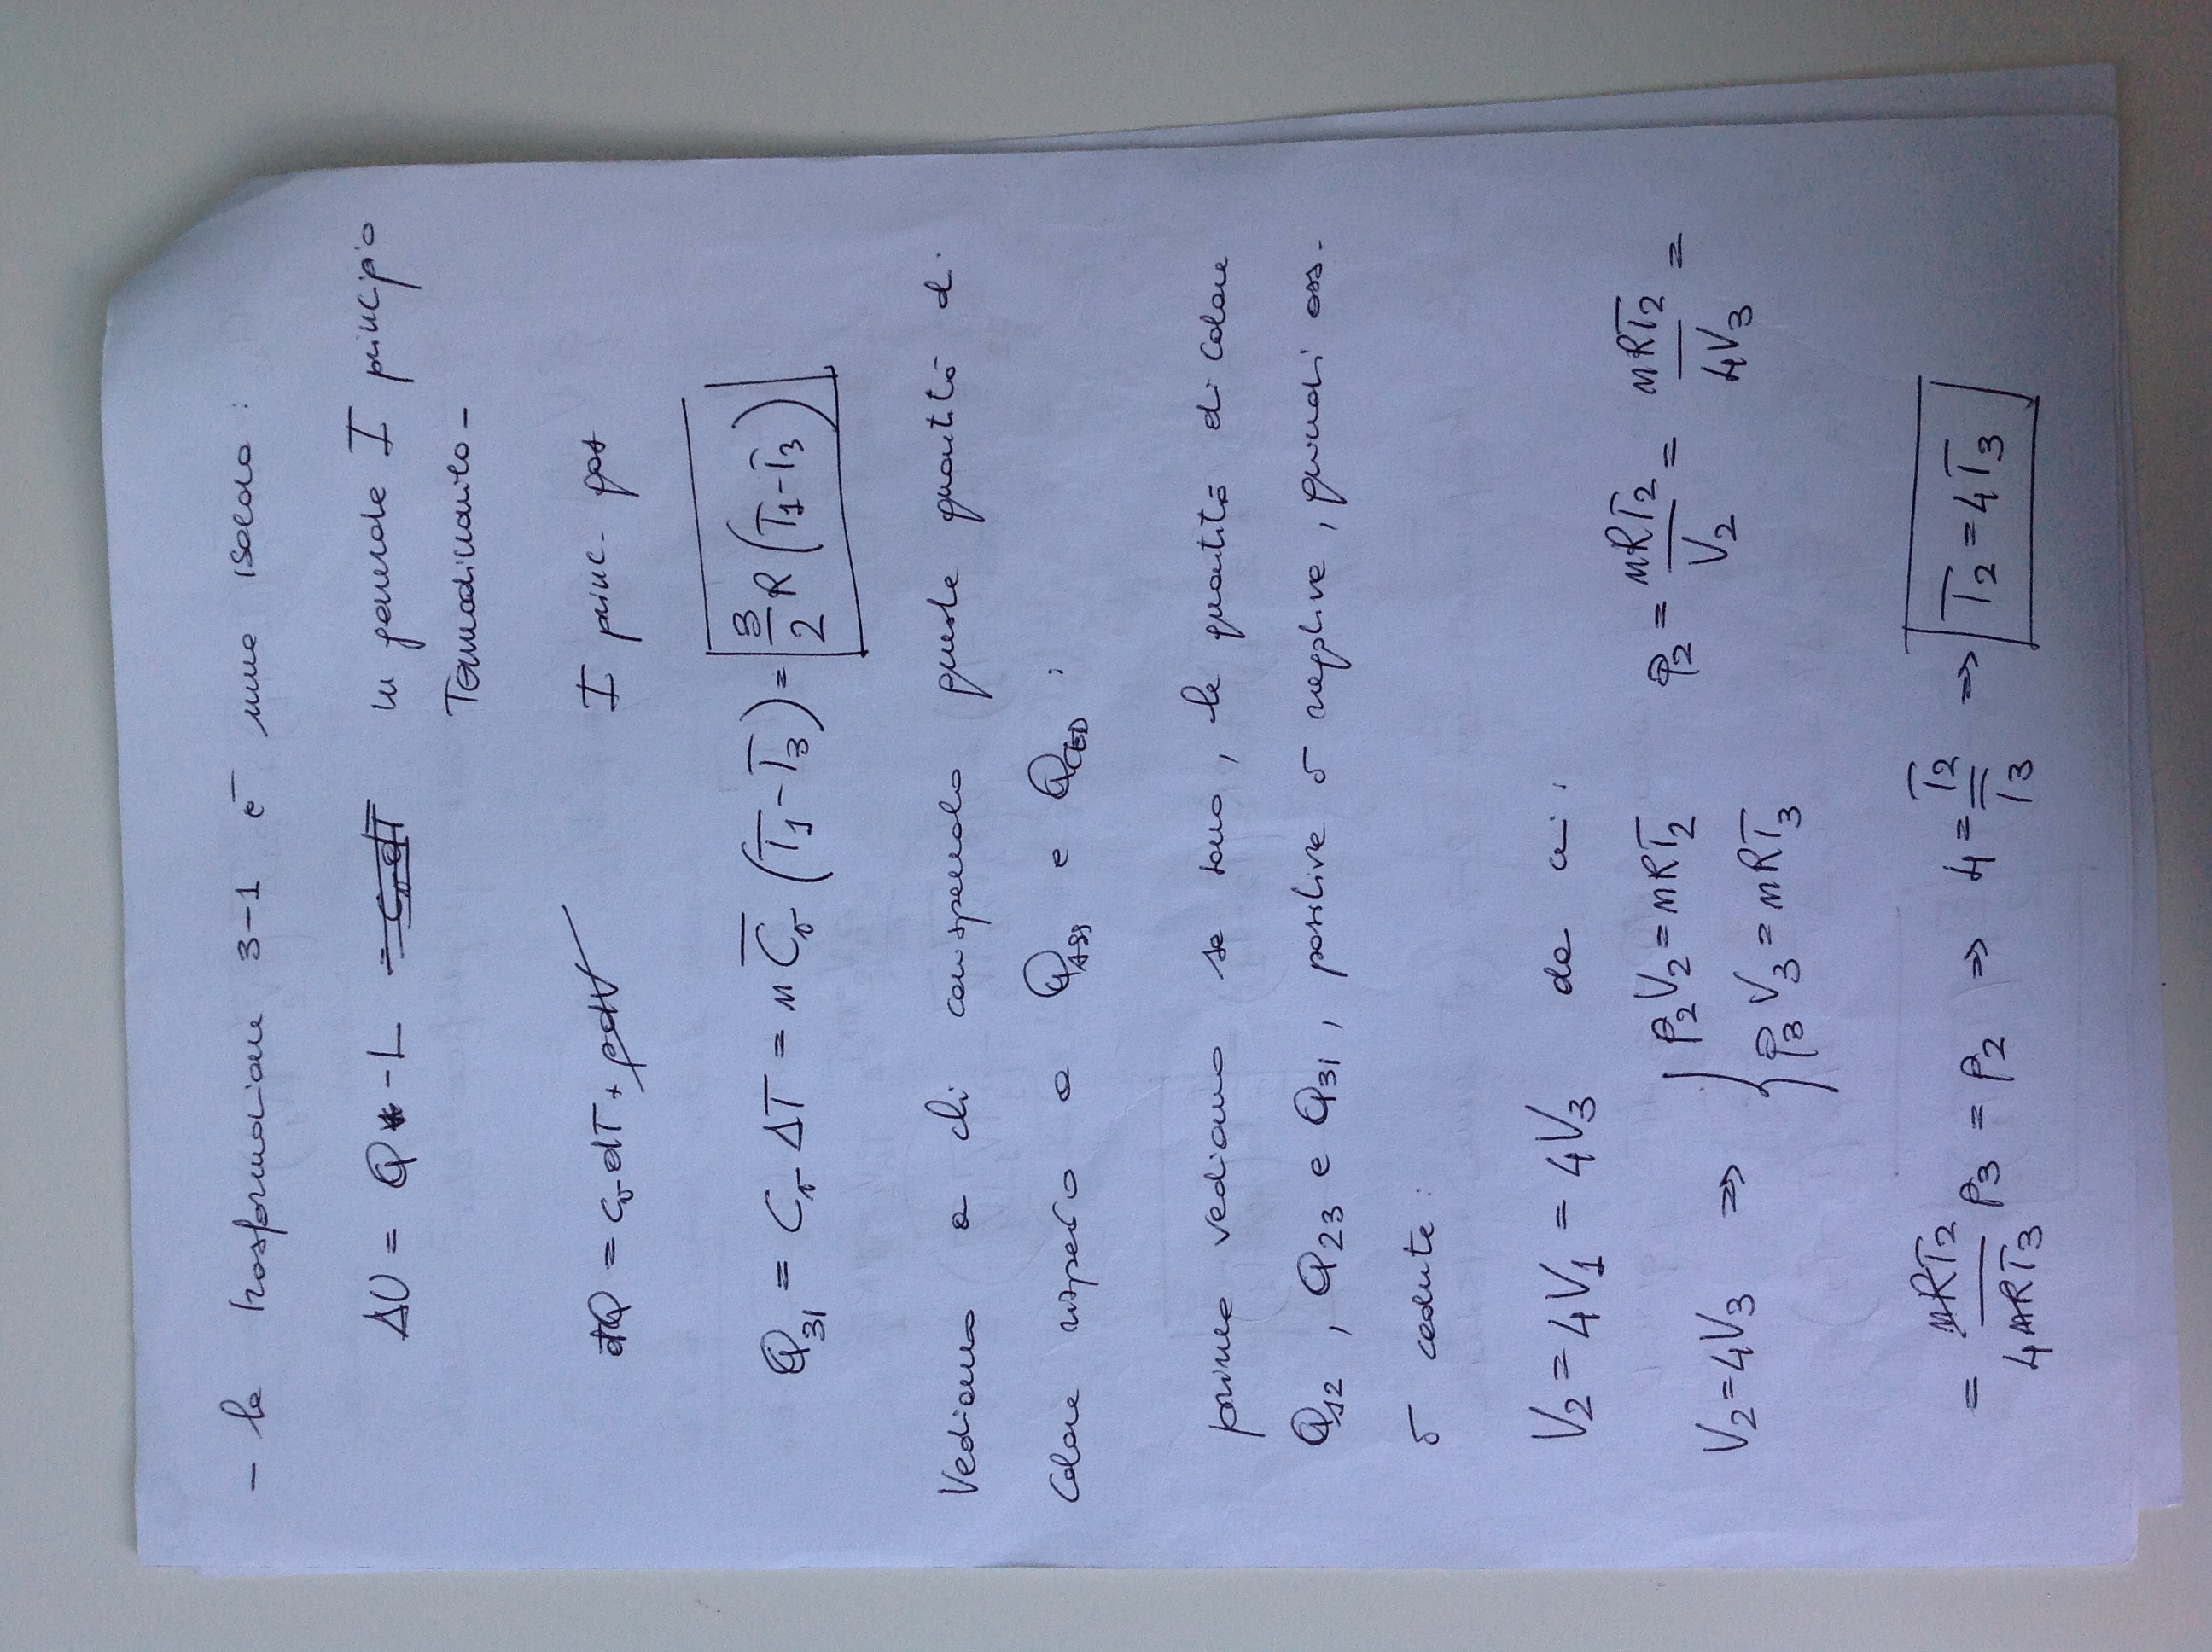 - la trasformazione 3-1 è una isocora:
ΔU = Q - L = CᵥdT in generale I principio
Termodinamica -
đQ = cᵥdT + pdV I princ. gas
Q₃₁ = Cᵥ ΔT = n C̅ᵥ (T₁-T₃) = 3/2 R (T₁-T₃)
Vediamo a chi corrispondono queste quantità di
calore rispetto a Q_ASS e Q_CED :
prima vediamo se sono, le quantità di calore
Q₁₂, Q₂₃ e Q₃₁, positive o negative, quindi ass.
o cedute:
V₂ = 4V₁ = 4V₃ da cui:
V₂=4V₃ ⇒ { p₂V₂ = nRT₂ p₂ = nRT₂/V₂ = nRT₂/4V₃ =
p₃V₃ = nRT₃
= nRT₂/4nRT₃ p₃ = p₂ ⇒ 4 = T₂/T₃ ⇒ T₂ = 4T₃